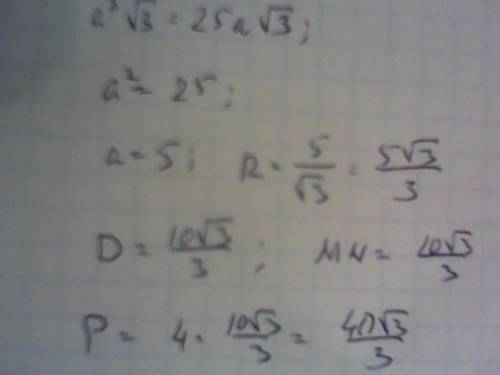 a³√3 = 25a√3;
a² = 25;
a = 5; R = 5/√3 = 5√3/3
D = 10√3/3; MN = 10√3/3
P = 4 · 10√3/3 = 40√3/3